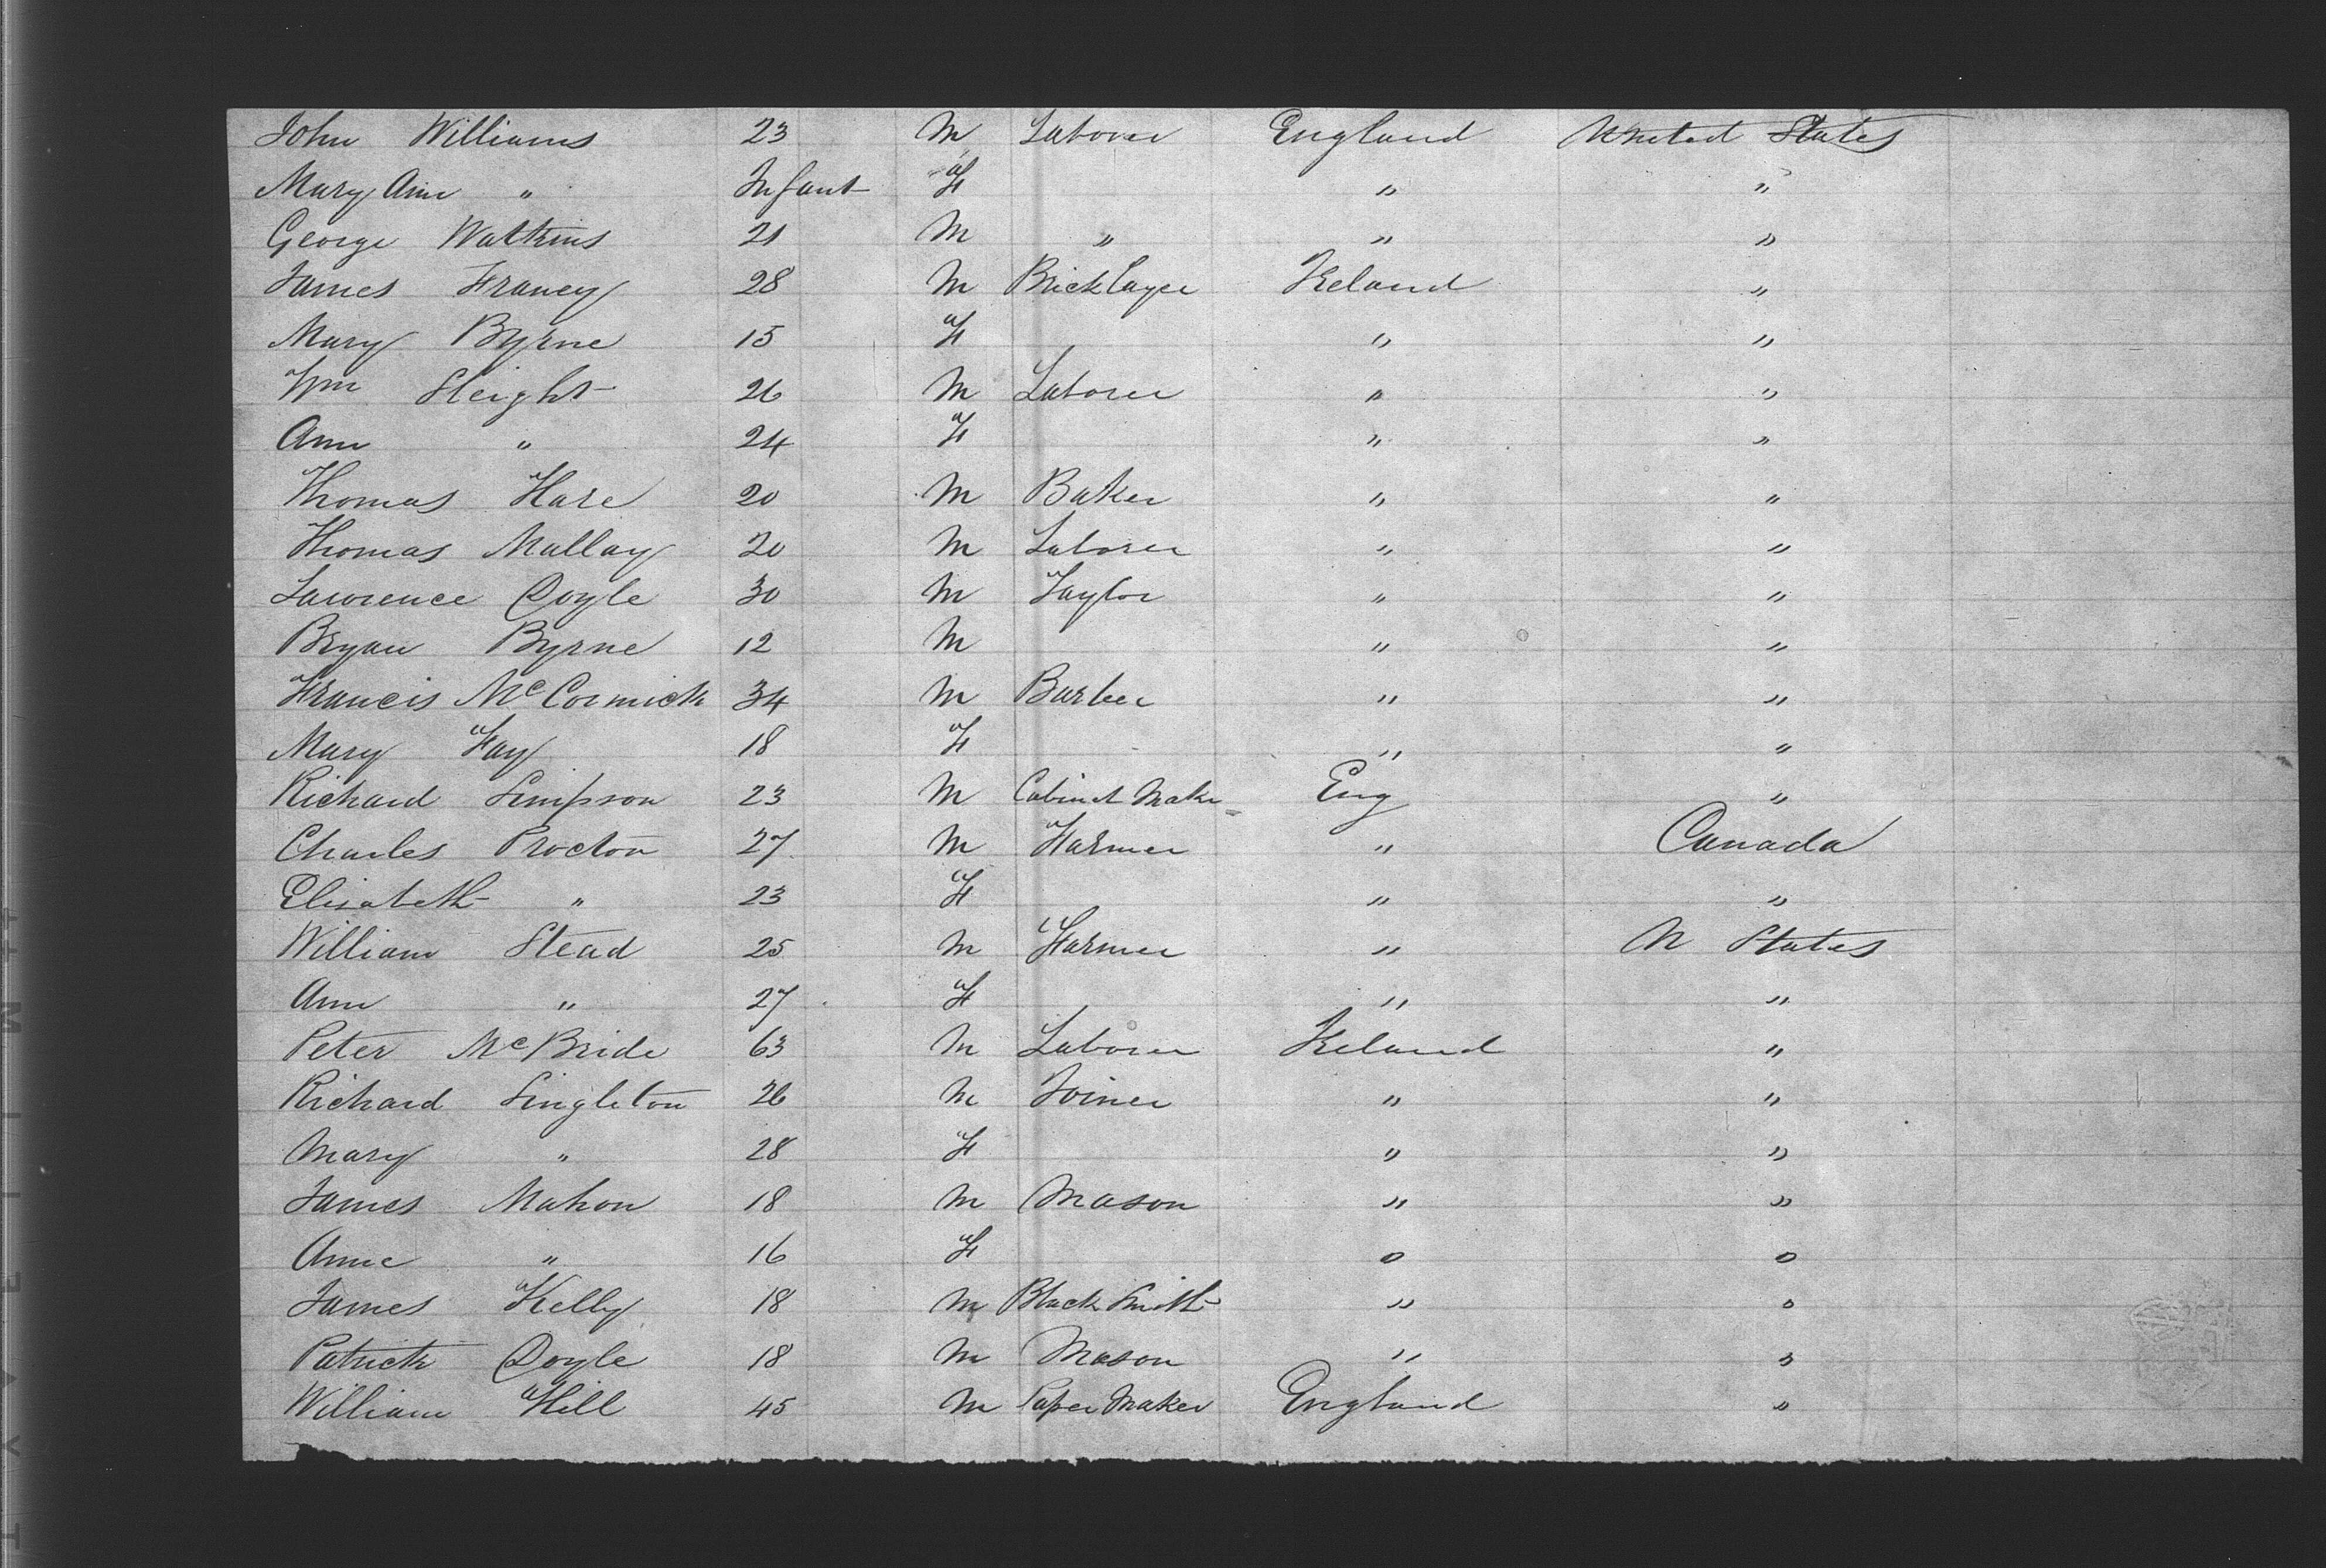 John Williams 23 M Laborer England United States
Mary Ann " Infant F " "
George Watkins 21 M " " "
James Franey 28 M Bricklayer Ireland "
Mary Byrne 15 F " "
Wm Sleight 26 M Laborer " "
Ann " 24 F " "
Thomas Hare 20 M Baker " "
Thomas Mallay 20 M Laborer " "
Lawrence Doyle 30 M Taylor " "
Bryan Byrne 12 M " "
Francis McCormick 34 M Barber " "
Mary Fay 18 F " "
Richard Simpson 23 M Cabinet Maker Eng "
Charles Procton 27 M Farmer " Canada
Elisabeth " 23 F " "
William Stead 25 M Farmer " U States
Ann " 27 F " "
Peter McBride 63 M Laborer Ireland "
Richard Singleton 26 M Joiner " "
Mary " 28 F " "
James Mahon 18 M Mason " "
Anne " 16 F " "
James Kelly 18 M Black Smith " "
Patrick Doyle 18 M Mason " "
William Hill 45 M Paper Maker England "